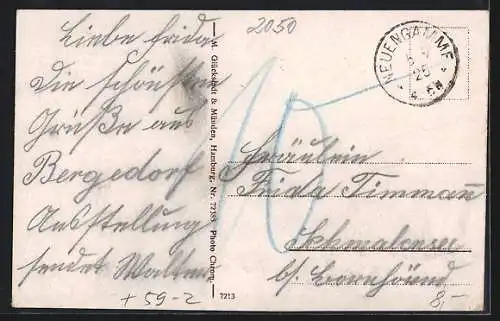 2050
Liebe Frida
Die schönsten
Grüße aus
Bergedorf
Ausstellung
sendet Walter
+ 59-2
M. Glückstadt & Münden, Hamburg. Nr. 72185 Photo Chrom.
7213
10
NEUENGAMME
25
Fräulein
Frida Timmañ
Schmalensee
b/. Bornhöved
8,-